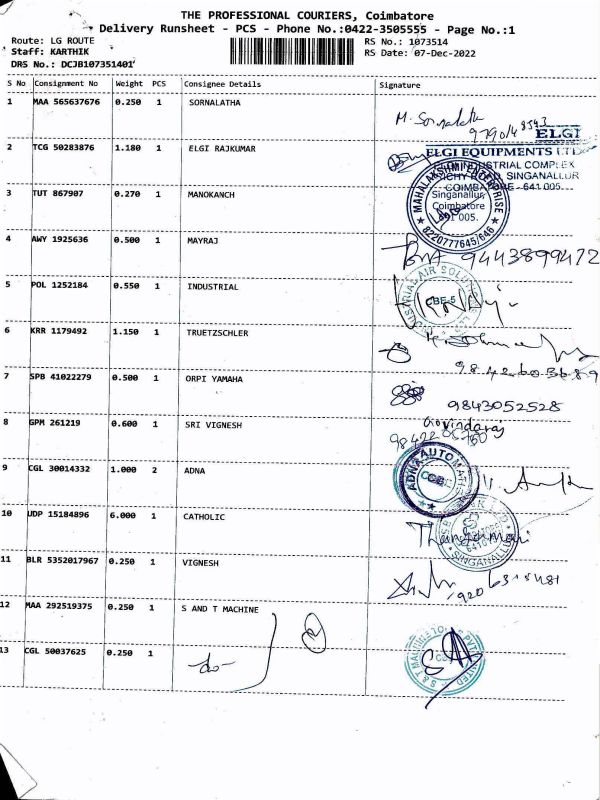 THE PROFESSIONAL COURIERS, Coimbatore
Delivery Runsheet - PCS - Phone No.:0422-3505555 - Page No.:1
Route: LG ROUTE
RS No.: 1073514
Staff: KARTHIK
RS Date: 07-Dec-2022
DRS No.: DCJB107351401
S No Consignment No Weight PCS Consignee Details Signature
1 MAA 565637676 0.250 1 SORNALATHA
M. Sornalatha
2 TCG 50283876 1.180 1 ELGI RAJKUMAR
ELGI
ELGI EQUIPMENTS LTD
INDUSTRIAL COMPLEX
TRICHY ROAD, SINGANALLUR
COIMBATORE - 641 005.
3 TUT 867907 0.270 1 MANOKANCH
MAHALAKSHMI ENTERPRISE
Singanallur,
Coimbatore
641 005.
8220777645/646
4 AWY 1925636 0.500 1 MAYRAJ
9443899472
5 POL 1252184 0.550 1 INDUSTRIAL
INDUSTRIAL AIR SOLUTIONS
CBE-5
6 KRR 1179492 1.150 1 TRUETZSCHLER
7 SPB 41022279 0.500 1 ORPI YAMAHA
9843052528
8 GPM 261219 0.600 1 SRI VIGNESH
Govindaraj
9 CGL 30014332 1.000 2 ADNA
ADNA AUTOMAT
10 UDP 15184896 6.000 1 CATHOLIC
SINGANALLUR
11 BLR 5352017967 0.250 1 VIGNESH
12 MAA 292519375 0.250 1 S AND T MACHINE
13 CGL 50037625 0.250 1
-do-
S & T MACHINERY (P) LIMITED